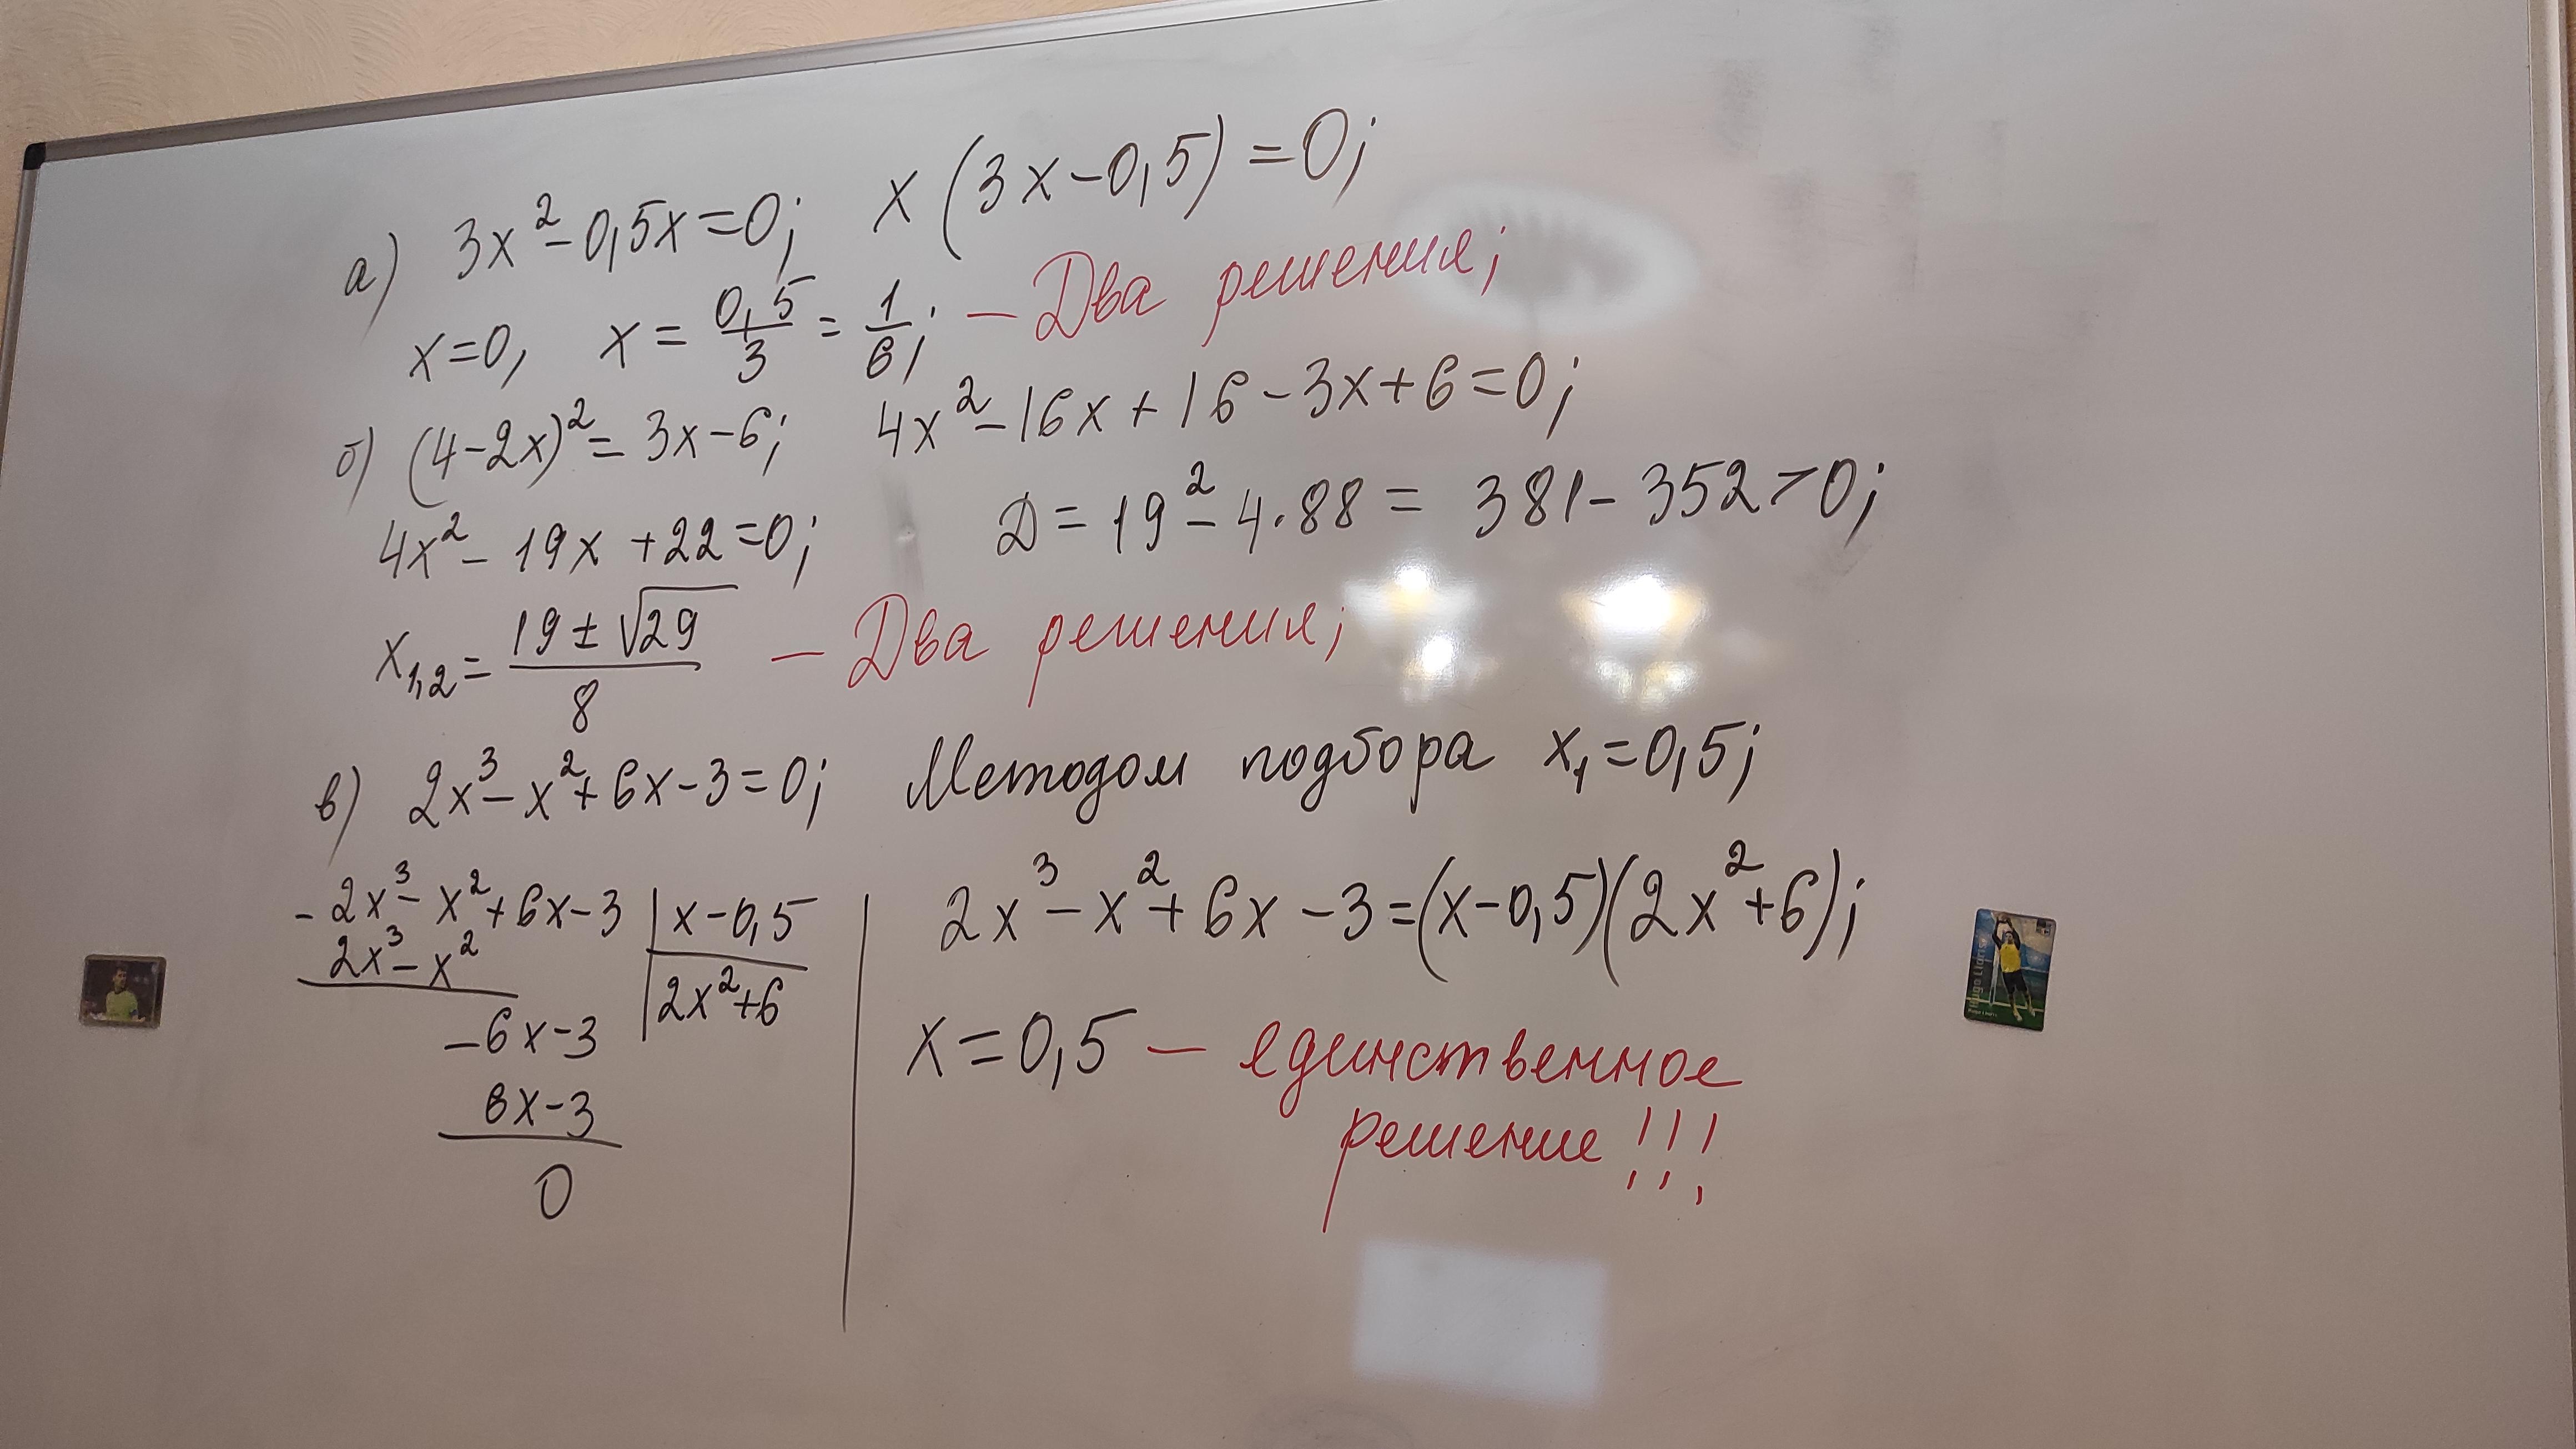 а) 3x²-0,5x=0; x(3x-0,5)=0;
x=0, x=0,5/3=1/6; — Два решения;
б) (4-2x)²=3x-6; 4x²-16x+16-3x+6=0;
4x²-19x+22=0; D=19²-4·88=381-352>0;
x₁,₂=(19±√29)/8 — Два решения;
в) 2x³-x²+6x-3=0; Методом подбора x₁=0,5;
-2x³-x²+6x-3 | x-0,5
2x³-x² | 2x²+6
-6x-3
6x-3
0
2x³-x²+6x-3=(x-0,5)(2x²+6);
x=0,5 — единственное
решение!!!
Hugo Lloris